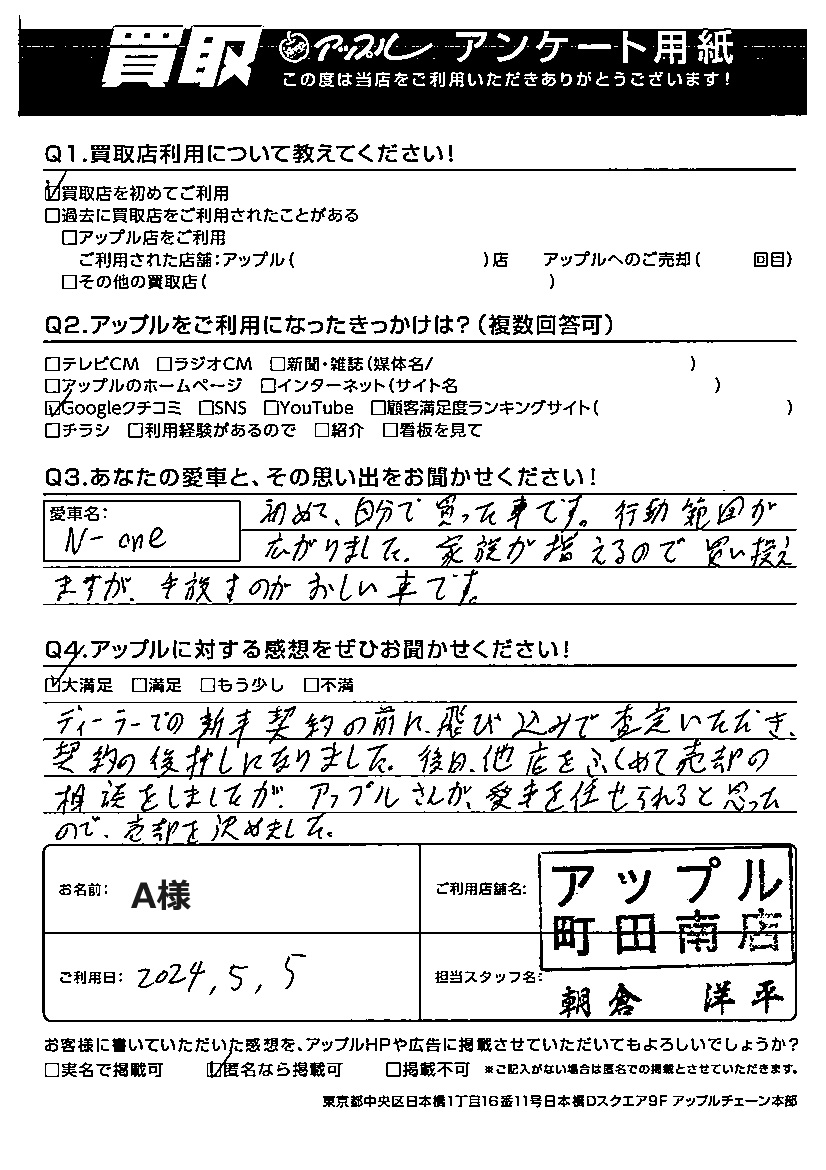 買取 アップル アンケート用紙
この度は当店をご利用いただきありがとうございます!
Q1.買取店利用について教えてください!
☑買取店を初めてご利用
□過去に買取店をご利用されたことがある
□アップル店をご利用
ご利用された店舗:アップル( )店 アップルへのご売却( 回目)
□その他の買取店( )
Q2.アップルをご利用になったきっかけは?(複数回答可)
□テレビCM □ラジオCM □新聞・雑誌(媒体名/ )
□アップルのホームページ □インターネット(サイト名 )
☑Googleクチコミ □SNS □YouTube □顧客満足度ランキングサイト( )
□チラシ □利用経験があるので □紹介 □看板を見て
Q3.あなたの愛車と、その思い出をお聞かせください!
愛車名:
N-one
初めて、自分で買った車です。行動範囲が
広がりました。家族が増えるので買い換え
ますが、手放すのがおしい車です。
Q4.アップルに対する感想をぜひお聞かせください!
☑大満足 □満足 □もう少し □不満
ディーラーでの新車契約の前に、飛び込みで査定いただき、
契約の後押しになりました。後日、他店をふくめて売却の
相談をしましたが、アップルさんが、愛車を任せられると思った
ので、売却を決めました。
お名前: A様
ご利用店舗名: アップル
町田南店
ご利用日: 2024, 5, 5
担当スタッフ名: 朝倉 洋平
お客様に書いていただいた感想を、アップルHPや広告に掲載させていただいてもよろしいでしょうか?
□実名で掲載可 ☑匿名なら掲載可 □掲載不可 ※ご記入がない場合は匿名での掲載とさせていただきます。
東京都中央区日本橋1丁目16番11号日本橋Dスクエア9F アップルチェーン本部